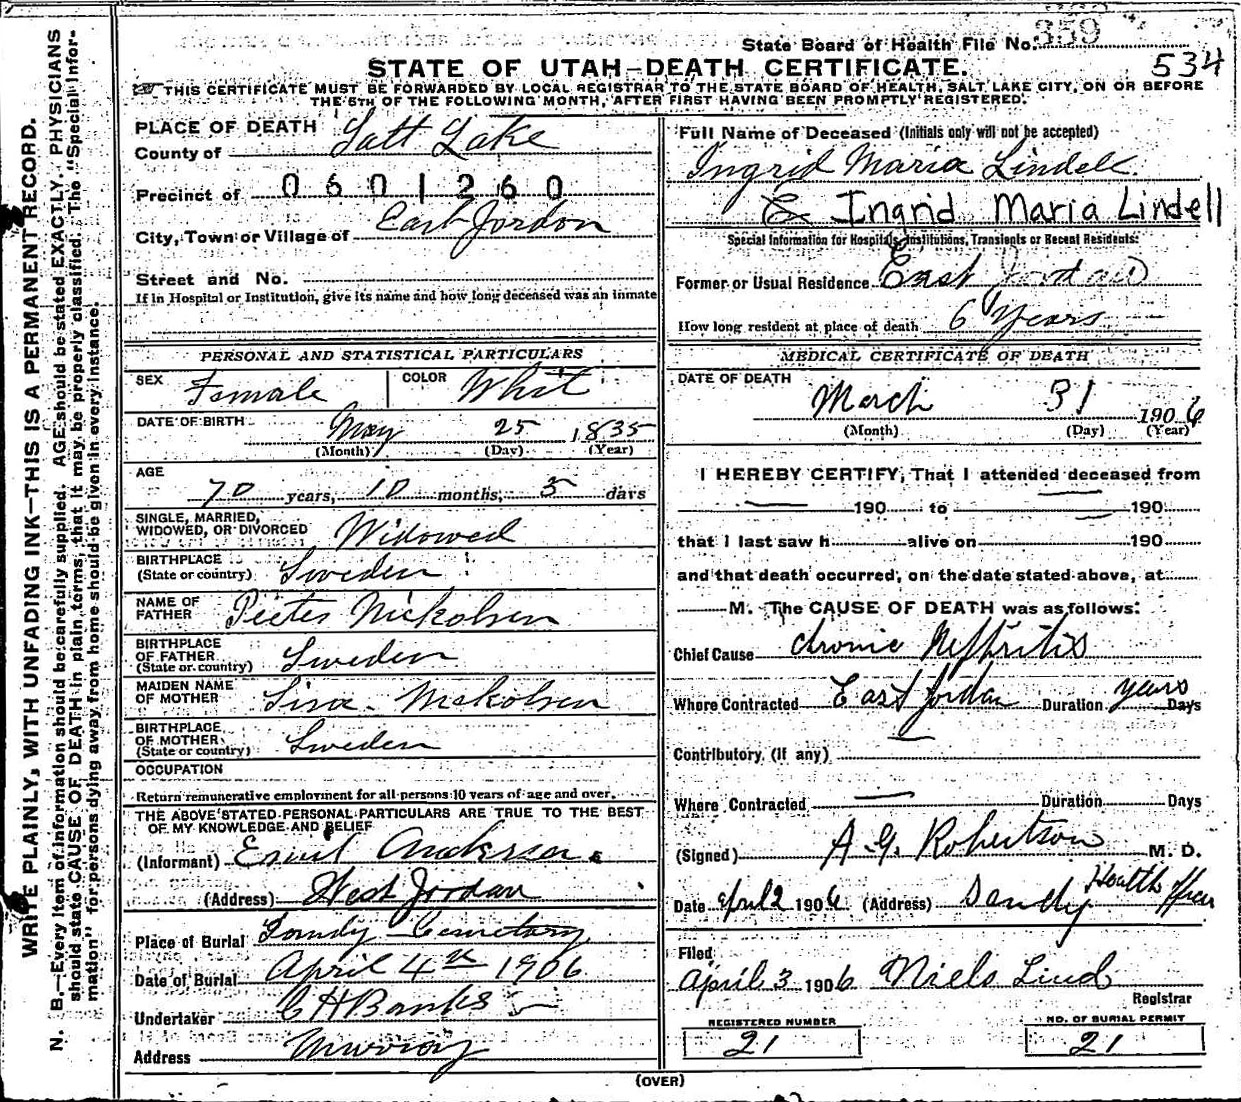 359
State Board of Health File No.
534
STATE OF UTAH—DEATH CERTIFICATE.
THIS CERTIFICATE MUST BE FORWARDED BY LOCAL REGISTRAR TO THE STATE BOARD OF HEALTH, SALT LAKE CITY, ON OR BEFORE
THE 5TH OF THE FOLLOWING MONTH, AFTER FIRST HAVING BEEN PROMPTLY REGISTERED.
WRITE PLAINLY, WITH UNFADING INK—THIS IS A PERMANENT RECORD.
N. B.—Every item of information should be carefully supplied. AGE should be stated EXACTLY. PHYSICIANS
should state CAUSE OF DEATH in plain terms, that it may be properly classified. The "Special Infor-
mation" for persons dying away from home should be given in every instance.
PLACE OF DEATH
County of Salt Lake
Precinct of 0601260
City, Town or Village of East Jordon
Street and No.
If in Hospital or Institution, give its name and how long deceased was an inmate
PERSONAL AND STATISTICAL PARTICULARS
SEX Female COLOR Whit
DATE OF BIRTH May 25 1835
(Month) (Day) (Year)
AGE
70 years, 10 months, 5 days
SINGLE, MARRIED,
WIDOWED, OR DIVORCED Widowed
BIRTHPLACE
(State or country) Sweden
NAME OF
FATHER Peeter Nickolsen
BIRTHPLACE
OF FATHER
(State or country) Sweden
MAIDEN NAME
OF MOTHER Sina Nickolsen
BIRTHPLACE
OF MOTHER
(State or country) Sweden
OCCUPATION
Return remunerative employment for all persons 10 years of age and over.
THE ABOVE STATED PERSONAL PARTICULARS ARE TRUE TO THE BEST
OF MY KNOWLEDGE AND BELIEF
(Informant) Emil Anderson
(Address) West Jordan
Place of Burial Sandy Cemetary
Date of Burial April 4th 1906
Undertaker C H Banks
Address Murray
Full Name of Deceased (Initials only will not be accepted)
Ingrid Maria Lindell.
Ingrid Maria Lindell
Special Information for Hospitals, Institutions, Transients or Recent Residents:
Former or Usual Residence East Jordan
How long resident at place of death 6 Years
MEDICAL CERTIFICATE OF DEATH
DATE OF DEATH
March 31 1906
(Month) (Day) (Year)
I HEREBY CERTIFY, That I attended deceased from
190 to 190
that I last saw h alive on 190
and that death occurred, on the date stated above, at
M. The CAUSE OF DEATH was as follows:
Chief Cause chronic Nephritis
Where Contracted East Jordan Duration years Days
Contributory (if any)
Where Contracted Duration Days
(Signed) A. G. Robertson M. D.
Date April 2 1906 (Address) Sandy Health Officer
Filed
April 3 1906 Niels Lind
Registrar
REGISTERED NUMBER
21
NO. OF BURIAL PERMIT
21
(OVER)